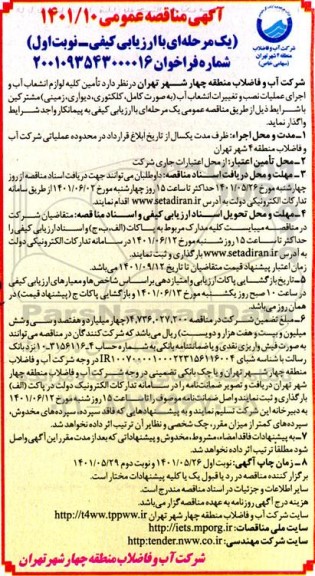 آگهی مناقصه عمومی ۱۴۰۱/۱۰
(یک مرحله‌ای با ارزیابی کیفی ـ نوبت اول)
شماره فراخوان ۲۰۰۱۰۹۳۵۴۳۰۰۰۰۱۶
شرکت آب و فاضلاب
منطقه ۴ شهر تهران
(سهامی خاص)
شرکت آب و فاضلاب منطقه چهار شهر تهران در نظر دارد تأمین کلیه لوازم انشعاب آب و
اجرای عملیات نصب و تغییرات انشعاب آب (به صورت کامل، کلکتوری، دیواری، زمینی) مشترکین
با شرایط ذیل از طریق مناقصه عمومی یک مرحله‌ای با ارزیابی کیفی به پیمانکار واجد شرایط
واگذار نماید.
۱ـ مدت و محل اجراء: ظرف مدت یکسال از تاریخ ابلاغ قرارداد در محدوده عملیاتی شرکت آب
و فاضلاب منطقه ۴ شهر تهران
۲ـ محل تأمین اعتبار: از محل اعتبارات جاری شرکت
۳ـ مهلت و محل دریافت اسناد مناقصه: داوطلبان می‌توانند جهت دریافت اسناد مناقصه از روز
چهارشنبه مورخ ۱۴۰۱/۰۵/۲۶ حداکثر تا ساعت ۱۵ روز چهارشنبه مورخ ۱۴۰۱/۰۶/۰۲ از طریق سامانه
تدارکات الکترونیکی دولت به آدرس www.setadiran.ir اقدام نمایند.
۴ـ مهلت و محل تحویل اسناد ارزیابی کیفی و اسناد مناقصه: متقاضیان شرکت
در مناقصه می‌بایست کلیه مدارک مربوط به پاکات (الف، ب، ج) و اسناد ارزیابی کیفی را
حداکثر تا ساعت ۱۵ روز شنبه مورخ ۱۴۰۱/۰۶/۱۲ در سامانه تدارکات الکترونیکی دولت
به آدرس www.setadiran.ir بارگذاری و ثبت نمایند.
زمان اعتبار پیشنهاد قیمت متقاضیان تا تاریخ ۱۴۰۱/۰۹/۱۲ می‌باشد.
۵ـ تاریخ بازگشایی پاکات ارزیابی و امتیازدهی براساس شاخص‌ها و معیارهای ارزیابی کیفی
در ساعت ۱۰ صبح روز یکشنبه مورخ ۱۴۰۱/۰۶/۱۳ و بازگشایی پاکات ج (پیشنهاد قیمت) در
همان روز می‌باشد.
۶ـ مبلغ تضمین شرکت در مناقصه ۴,۷۳۶,۰۲۷,۲۰۰ (چهار میلیارد و هفتصد و سی و شش
میلیون و بیست و هفت هزار و دویست) ریال می‌باشد که شرکت کنندگان در مناقصه می‌توانند
به صورت فیش واریزی نقدی و یا ضمانتنامه بانکی به شماره حساب ۴ـ۳۱۵۶۱۱۶ـ۱۰ نزد بانک
رسالت با شناسه شبای IR۱۰۰۷۰۰۰۰۱۰۰۰۲۲۳۱۵۶۱۱۶۰۰۴ در وجه شرکت آب و فاضلاب
منطقه چهار شهر تهران و یا چک بانکی تضمینی در وجه شرکت آب و فاضلاب منطقه چهار
شهر تهران دریافت و تصویر ضمانتنامه را در سامانه تدارکات الکترونیک دولت در پاکت (الف)
بارگذاری و ثبت نمایند و اصل ضمانتنامه مذکور را تا ساعت ۱۵ روز شنبه مورخ ۱۴۰۱/۰۶/۱۲
به دبیرخانه این شرکت تسلیم نمایند و به پیشنهادهایی که فاقد سپرده، سپرده‌های مخدوش،
سپرده‌های کمتر از میزان مقرر، چک شخصی و نظایر آن ترتیب اثر داده نخواهد شد.
۷ـ به پیشنهادات فاقد امضاء، مشروط، مخدوش و پیشنهاداتی که بعد از مدت مقرر این آگهی واصل
شود مطلقاً ترتیب اثر داده نخواهد شد.
۸ـ زمان چاپ آگهی: نوبت اول ۱۴۰۱/۰۵/۲۶ و نوبت دوم ۱۴۰۱/۰۵/۲۹
برگزار کننده مناقصه در رد یا قبول یک یا کلیه پیشنهادات مختار است.
سایر اطلاعات و جزئیات در اسناد مناقصه مندرج است.
هزینه درج آگهی روزنامه به عهده مناقصه گزار می‌باشد.
سایت شرکت آب و فاضلاب منطقه چهار شهر تهران http://t4ww.tppww.ir
سایت ملی مناقصات: http://iets.mporg.ir
سایت شرکت مهندسی: http:tender.nww.co.ir
شرکت آب و فاضلاب منطقه چهار شهر تهران